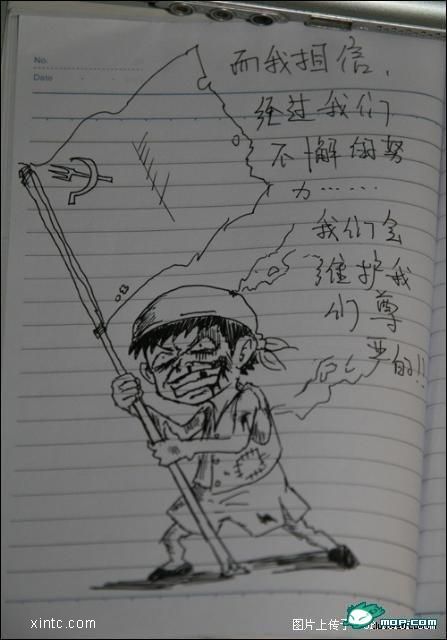 No.
Date
而我相信，
经过我们
不懈的努
力……
我们会
维护我
们尊
严的!!
xintc.com
图片上传于
mop.com